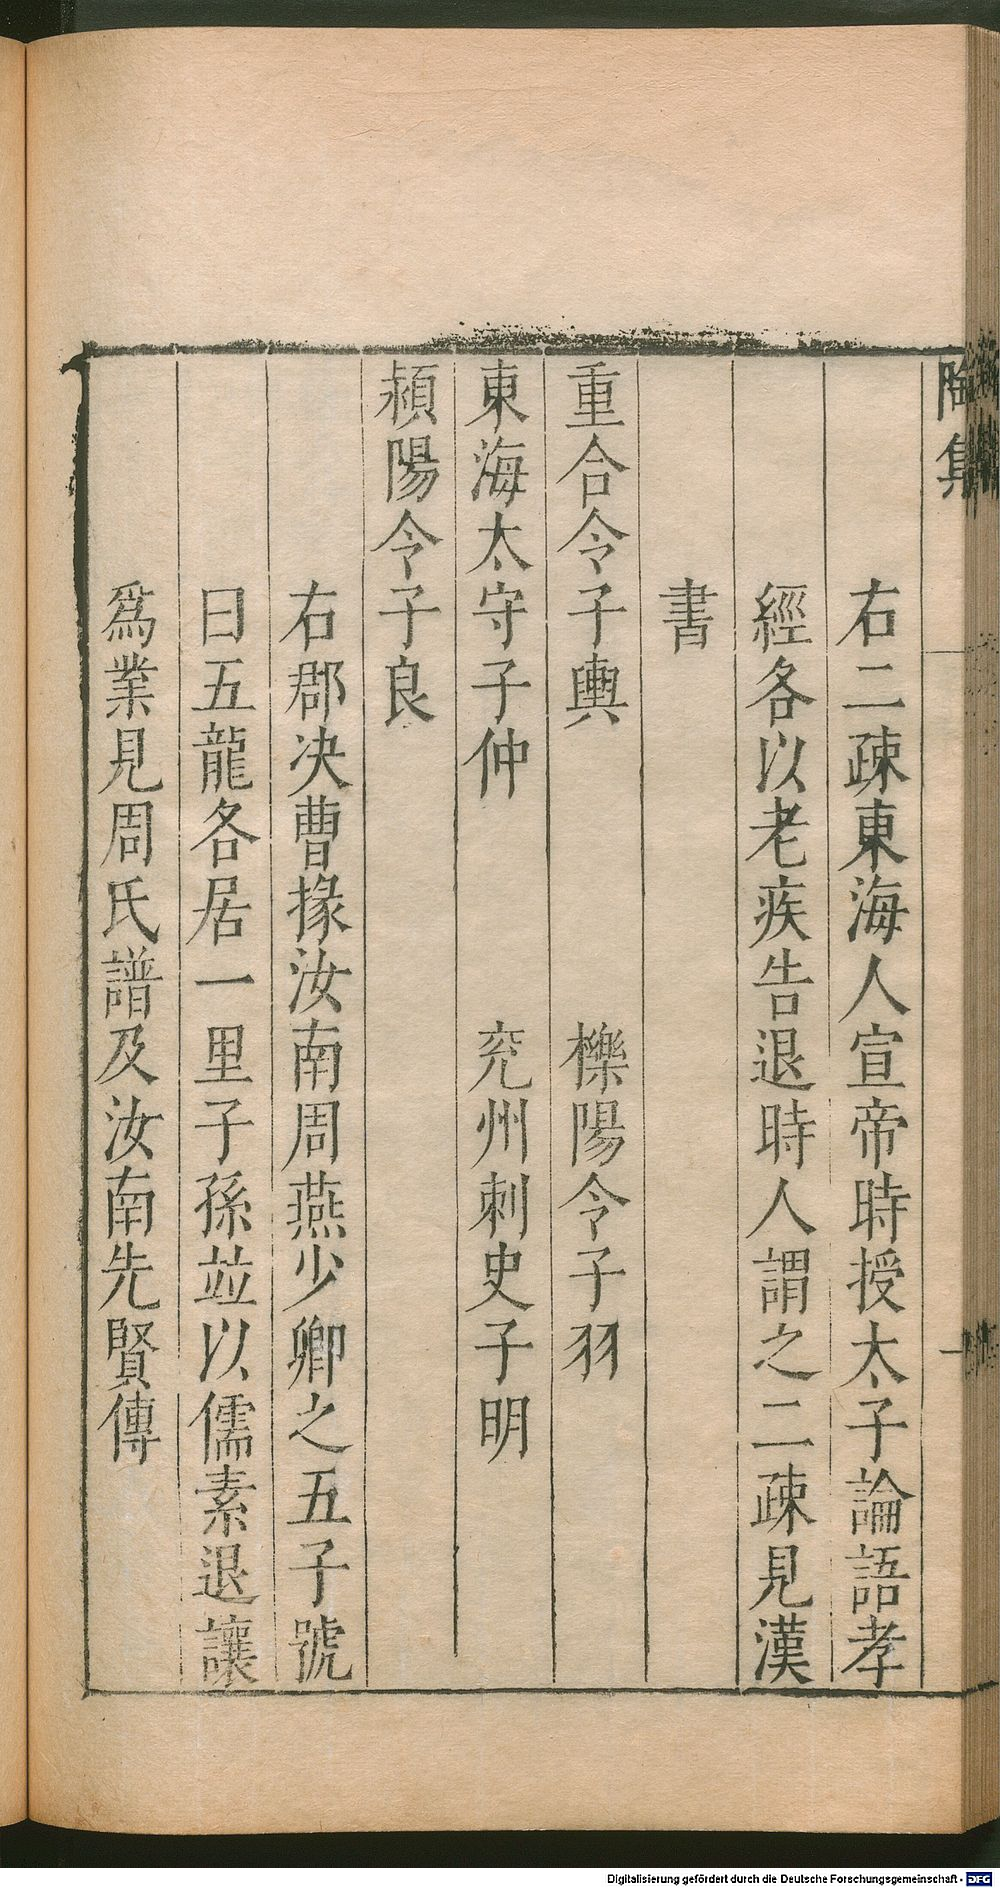 陶集
右二疎東海人宣帝時授太子論語孝
經各以老疾告退時人謂之二疎見漢
書
重合令子輿 櫟陽令子羽
東海太守子仲 兖州刺史子明
潁陽令子良
右郡决曹掾汝南周燕少卿之五子號
曰五龍各居一里子孫竝以儒素退讓
爲業見周氏譜及汝南先賢傳
Digitalisierung gefördert durch die Deutsche Forschungsgemeinschaft - DFG